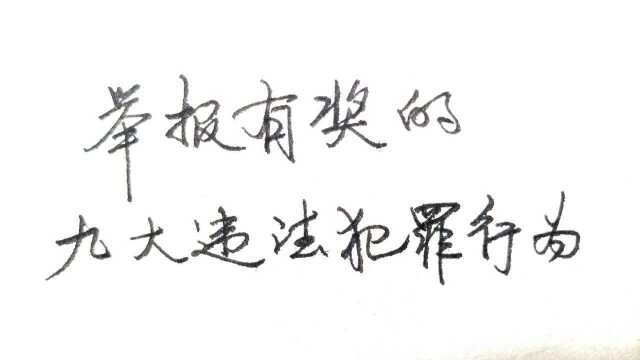 举报有奖的
九大违法犯罪行为